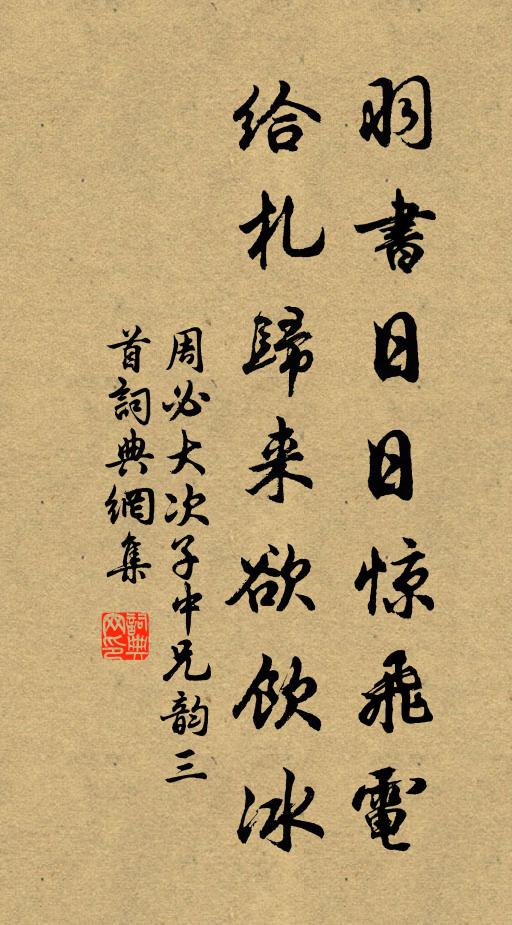 羽書日日惊飛電
給札歸来欲飲冰
周必大次子中兄韵三
首詞典網集
詞典網印